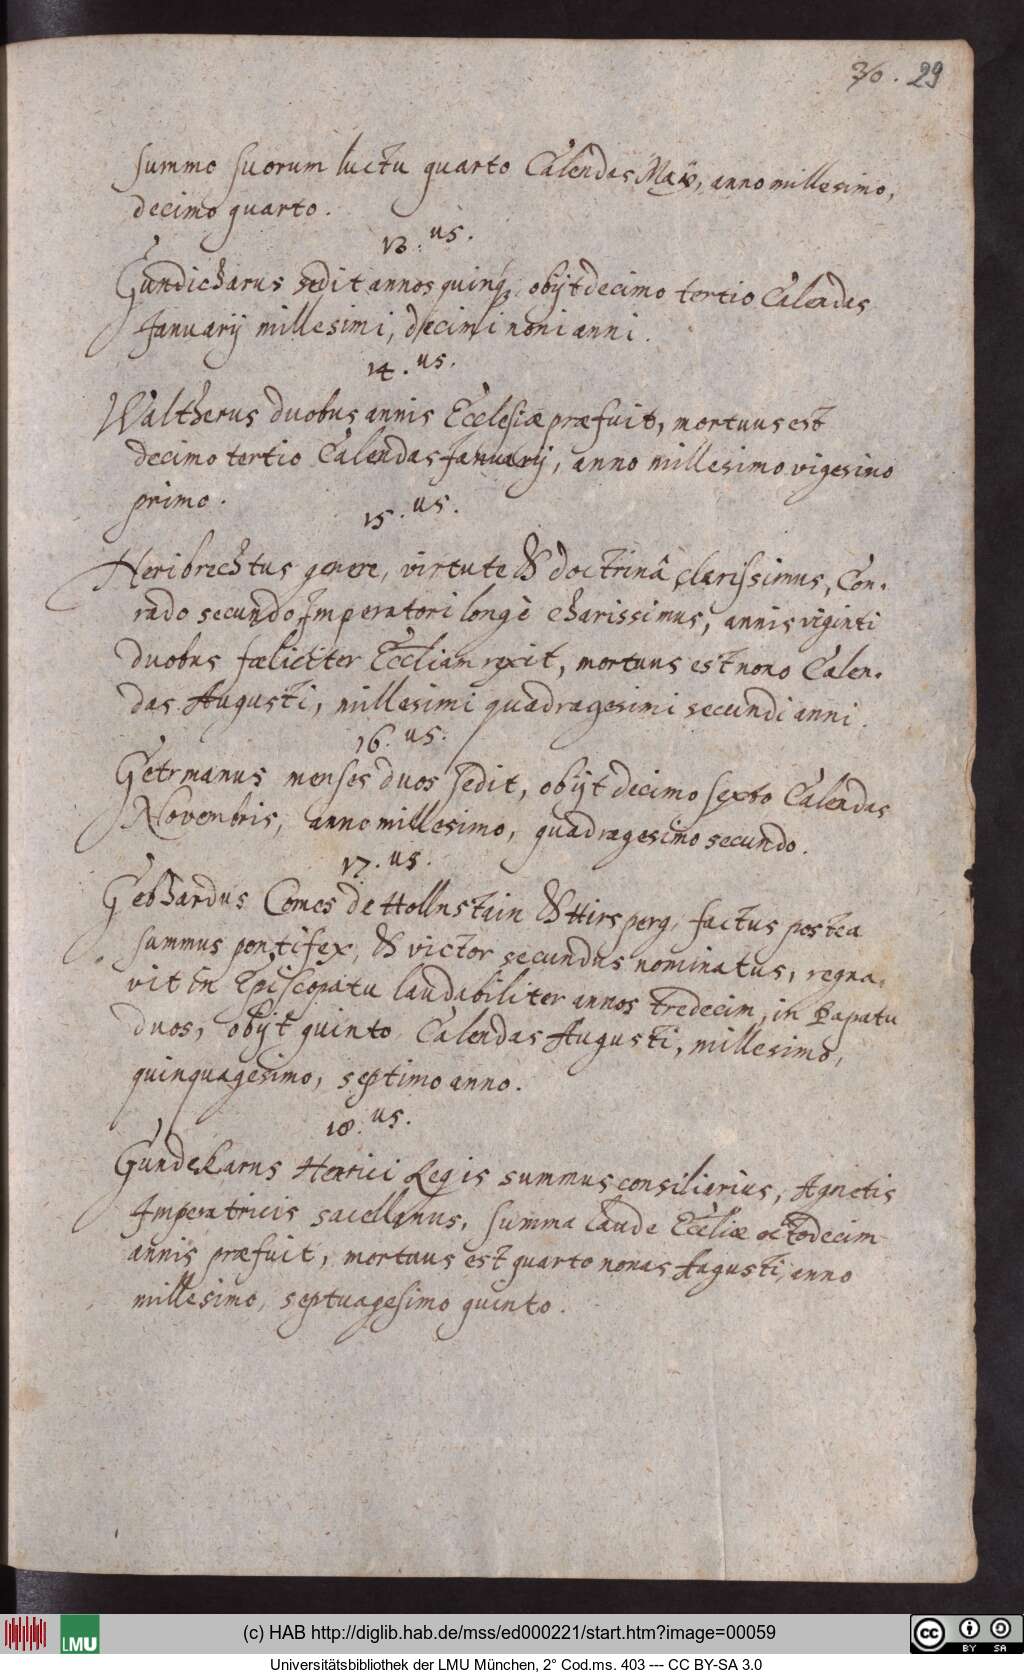 30. 29
summo suorum luctu quarto Calendas Maij, anno millesimo,
decimo quarto.
13.us.
Gundicharus sedit annos quinq; obijt decimo tertio Calendas
Januarij millesimi, decimi noni anni.
14.us.
Waltherus duobus annis Ecclesiæ præfuit, mortuus est
decimo tertio Calendas Januarij, anno millesimo vigesimo
primo.
15.us.
Heribrechtus genere, virtute & doctrinâ clarissimus, Con-
rado secundo Imperatori longè charissimus, annis viginti
duobus fæliciter Eccliam rexit, mortuus est nono Calen-
das Augusti, millesimi quadragesimi secundi anni.
16.us.
Getrmanus menses duos sedit, obijt decimo sexto Calendas
Novembris, anno millesimo, quadragesimo secundo.
17.us.
Gebhardus Comes de Hollnstain & Hirsperg, factus postea
summus pontifex, & victor secundus nominatus, regna-
vit in Episcopatu laudabiliter annos tredecim, in Papatu
duos, obijt quinto Calendas Augusti, millesimo,
quinquagesimo, septimo anno.
18.us.
Gundekarus Henrici Regis summus consiliarius, Agnetis
Imperatricis sacellanus, summa laude Eccliæ octodecim
annis præfuit, mortuus est quarto nonas Augusti, anno
millesimo, septuagesimo quinto.
LMU
(c) HAB http://diglib.hab.de/mss/ed000221/start.htm?image=00059
cc BY SA
Universitätsbibliothek der LMU München, 2° Cod.ms. 403 --- CC BY-SA 3.0